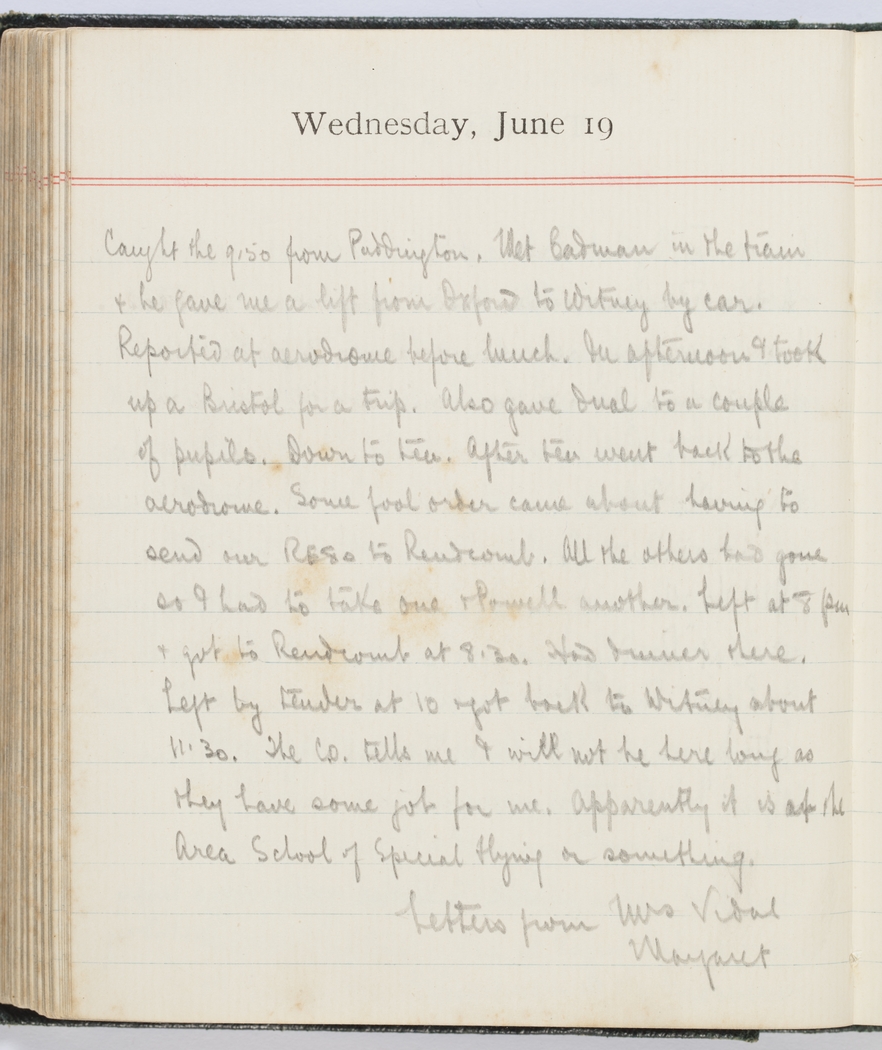 Wednesday, June 19
Caught the 9.50 from Paddington. Met Cadman in the train
& he gave me a lift from Oxford to Witney by car.
Reported at aerodrome before lunch. In afternoon I took
up a Bristol for a trip. Also gave dual to a couple
of pupils. Down to tea. After tea went back to the
aerodrome. Some fool order came about having to
send our RE8s to Rendcomb. All the others had gone
so I had to take one & Powell another. Left at 8 pm
& got to Rendcomb at 8.30. Had dinner there.
Left by tender at 10 & got back to Witney about
11.30. The Co. tells me I will not be here long as
they have some job for me. Apparently it is at the
Area School of Special Flying or something.
Letters from Mrs Vidal
Margaret